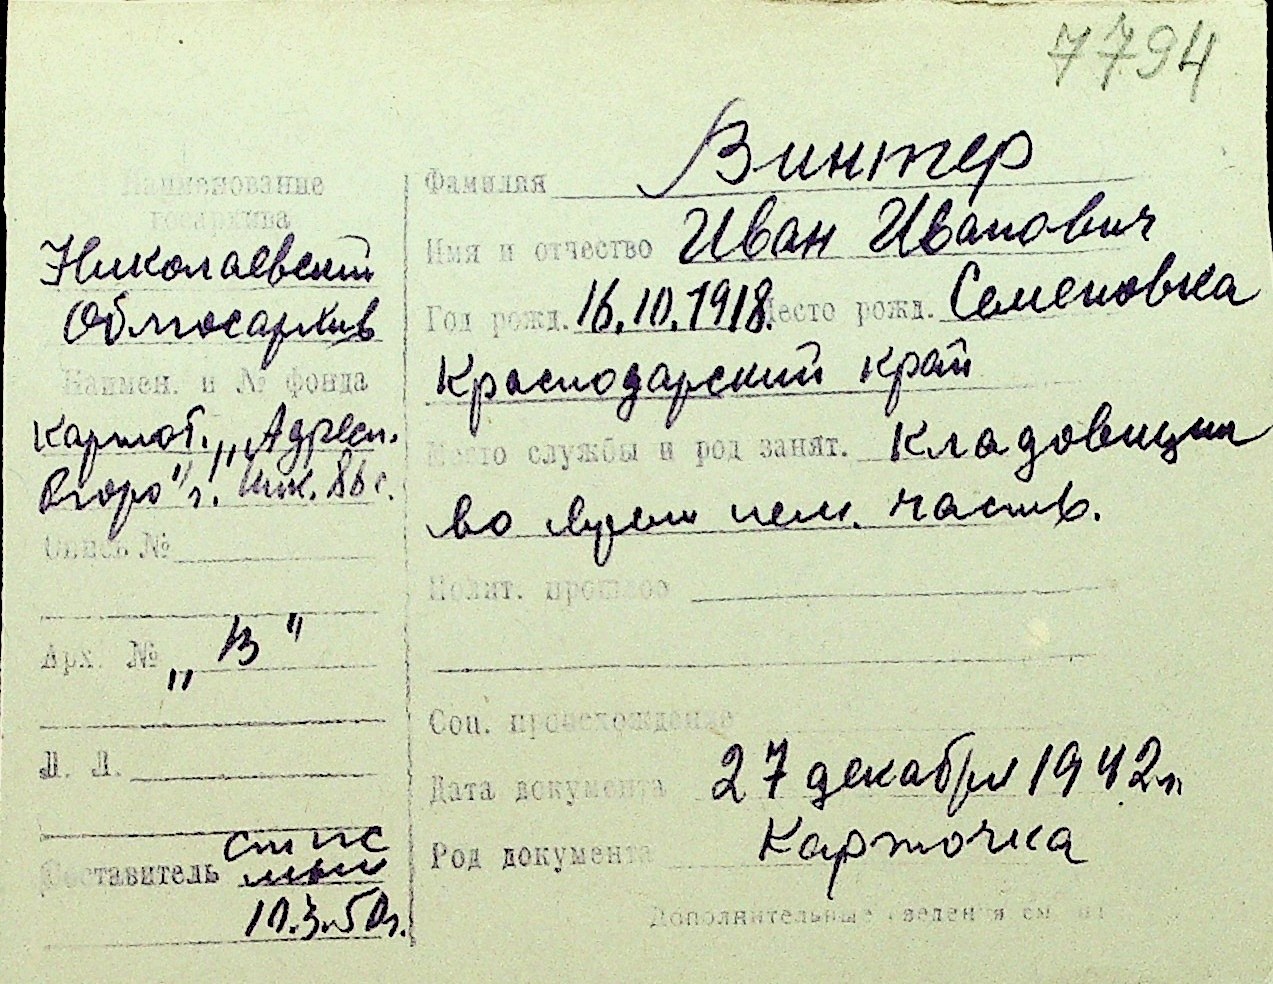 7794
Наименование
госархива
Николаевский
Облгосархив
Наимен. и № фонда
картот. „Адресн.
бюро" г. Ник. 86 с.
Опись №
Арх. № „В"
Л. Л.
Составитель
10.3.50г.
Фамилия Винтер
Имя и отчество Иван Иванович
Год рожд. 16.10.1918. Место рожд. Семеновка
Краснодарский край
Место службы и род занят. Кладовщик
во время нем. части.
Полит. прошлое
Соц. происхождение
Дата документа 27 декабря 1942г.
Род документа Карточка
Дополнительные сведения см. на